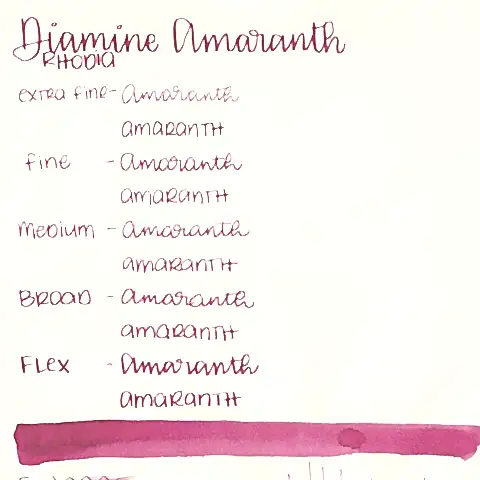 Diamine Amaranth
RHODIA
extra fine - Amaranth
amaranth
fine - Amaranth
amaranth
medium - Amaranth
amaranth
Broad - Amaranth
amaranth
Flex - Amaranth
amaranth